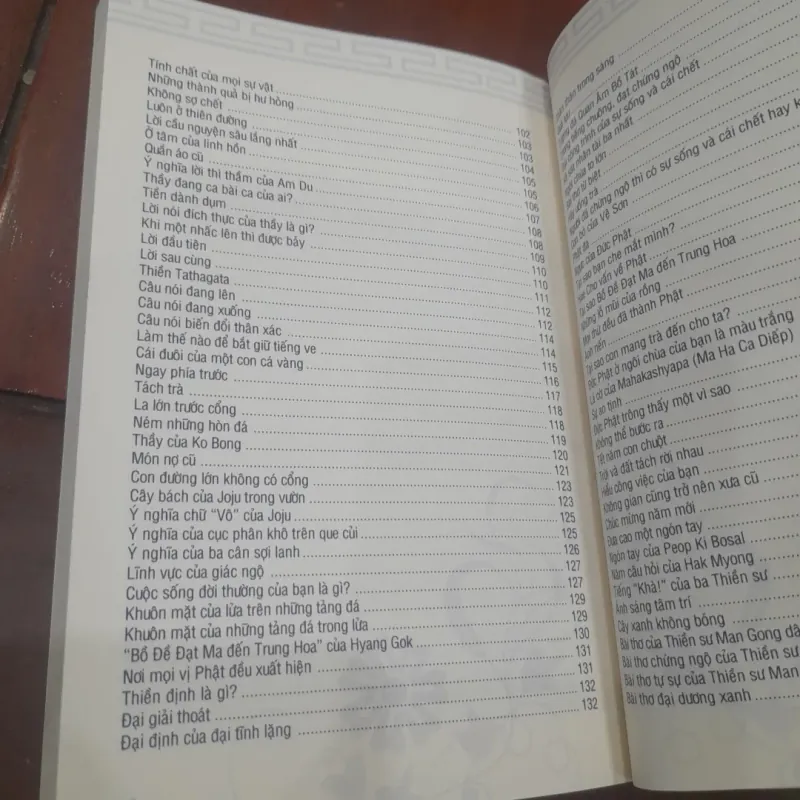 Tính chất của mọi sự vật ........ 102
Những thành quả bị hư hỏng ........ 103
Không sợ chết ........ 103
Luôn ở thiên đường ........ 104
Lời cầu nguyện sâu lắng nhất ........ 105
Ở tâm của linh hồn ........ 105
Quần áo cũ ........ 106
Ý nghĩa lời thì thầm của Am Du ........ 107
Thầy đang ca bài ca của ai? ........ 108
Tiền dành dụm ........ 108
Lời nói đích thực của thầy là gì? ........ 109
Khi một nhấc lên thì được bảy ........ 110
Lời đầu tiên ........ 110
Lời sau cùng ........ 111
Thiền Tathagata ........ 112
Câu nói đang lên ........ 112
Câu nói đang xuống ........ 114
Câu nói biến đổi thân xác ........ 114
Làm thế nào để bắt giữ tiếng ve ........ 115
Cái đuôi của một con cá vàng ........ 116
Ngay phía trước ........ 117
Tách trà ........ 118
La lớn trước cổng ........ 118
Ném những hòn đá ........ 119
Thầy của Ko Bong ........ 120
Món nợ cũ ........ 121
Con đường lớn không có cổng ........ 123
Cây bách của Joju trong vườn ........ 123
Ý nghĩa chữ "Vô" của Joju ........ 125
Ý nghĩa của cục phân khô trên que củi ........ 125
Ý nghĩa của ba cân sợi lanh ........ 126
Lĩnh vực của giác ngộ ........ 127
Cuộc sống đời thường của bạn là gì? ........ 127
Khuôn mặt của lừa trên những tảng đá ........ 129
Khuôn mặt của những tảng đá trong lừa ........ 129
"Bồ Đề Đạt Ma đến Trung Hoa" của Hyang Gok ........ 130
Nơi mọi vị Phật đều xuất hiện ........ 131
Thiền định là gì? ........ 131
Đại giải thoát ........ 132
Đại định của đại tĩnh lặng ........ 132
trong sáng
Quan Âm Bồ Tát
chuông, đạt chứng ngộ
của sự sống và cái chết
ba nhất
to lớn
từ biệt
trà
chứng ngộ thì có sự sống và cái chết hay k
của Vệ Sơn
của Đức Phật
sao bạn che mắt mình?
Cho vấn về Phật
Tại sao Bồ Đề Đạt Ma đến Trung Hoa
Những lỗ mũi của rồng
thú đều đã thành Phật
Tại sao con mang trà đến cho ta?
Đức Phật ở ngôi chùa của bạn là màu trắng
Lá cờ của Mahakashyapa (Ma Ha Ca Diếp)
Sự an tịnh
Đức Phật trông thấy một vì sao
Không thể bước ra
Tết năm con chuột
Trời và đất tách rời nhau
Hiểu công việc của bạn
Không gian cũng trở nên xưa cũ
Chúc mừng năm mới
Đưa cao một ngón tay
Ngón tay của Peop Ki Bosal
Năm câu hỏi của Hak Myong
Tiếng "Khà!" của ba Thiền sư
Ánh sáng tâm trí
Cây xanh không bóng
Bài thơ của Thiền sư Man Gong
Bài thơ chứng ngộ của Thiền sư
Bài thơ tự sự của Thiền sư Man
Bài thơ đại dương xanh